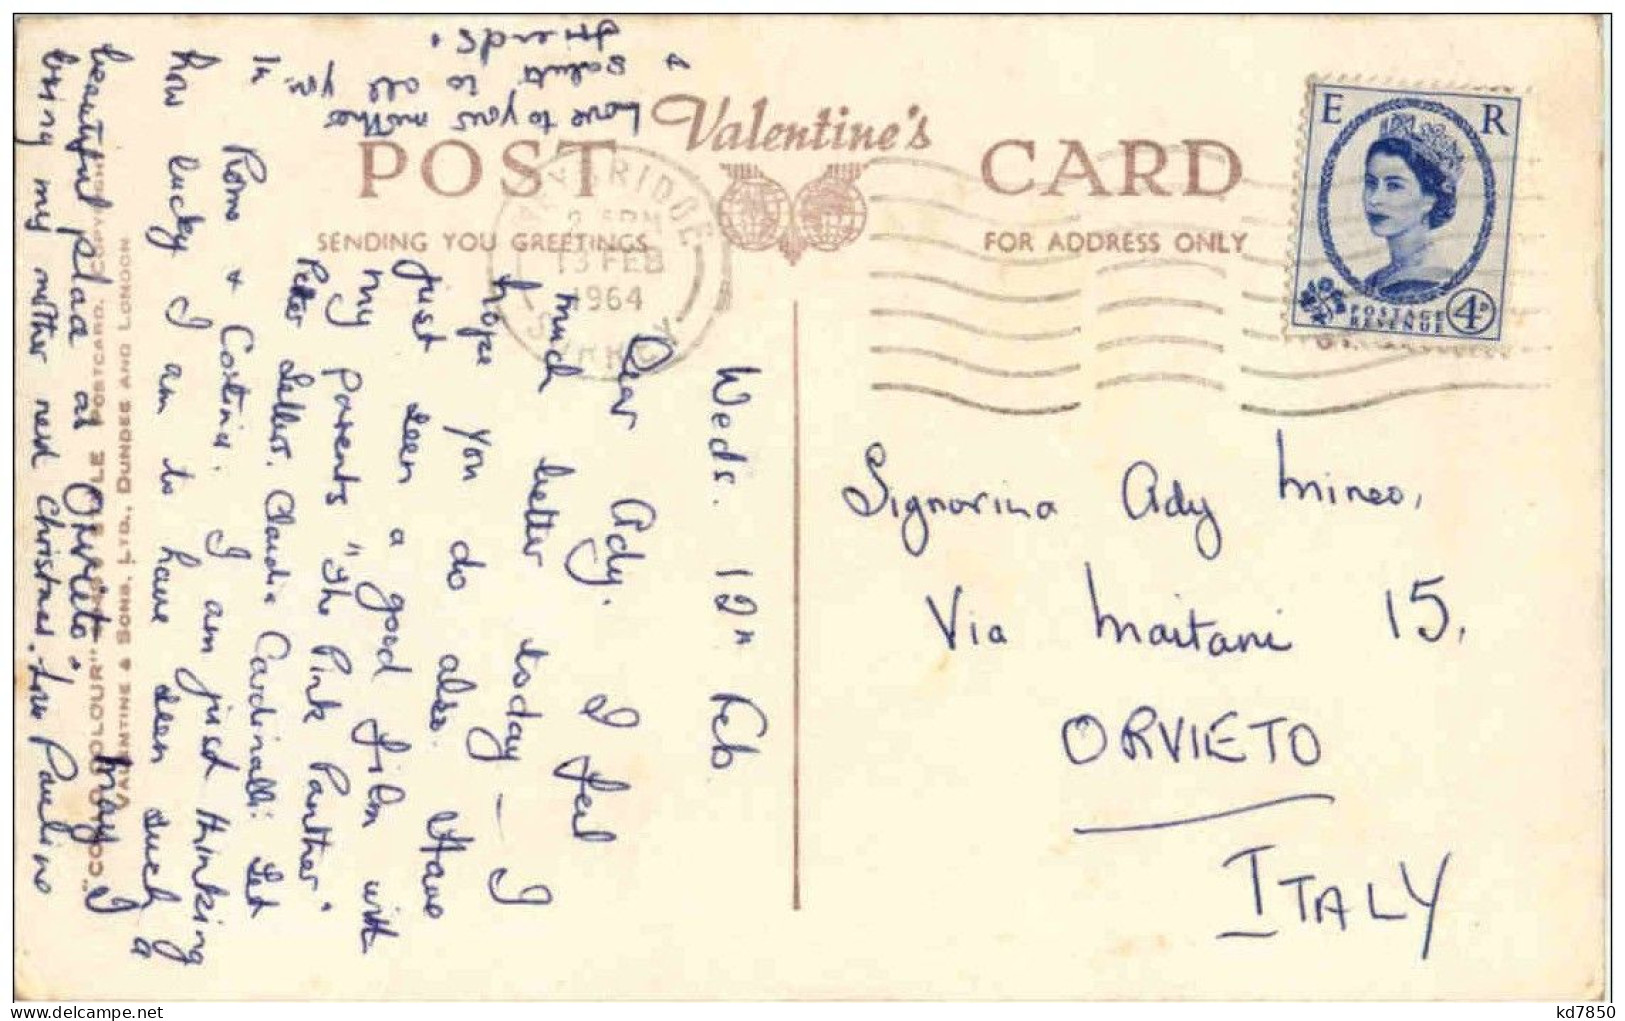 Valentine's
POST CARD
SENDING YOU GREETINGS
FOR ADDRESS ONLY
BRIDGE
13 FEB
1964
E R
POSTAGE
REVENUE
4D
Weds. 12th Feb.
Dear Ady. I feel
much better today — I
hope you do also. Have
just seen a good film with
my parents "The Pink Panther"
Peter Sellers. Claudia Cardinalli: Set
in Rome & Cortina. I am just thinking
how lucky I am to have seen such a
beautiful place as Orvieto. May I
bring my mother next Christmas. Love Pauline
Love to your mother
& saluti to all your
friends.
POSTCARD. COPYRIGHT
VALENTINE & SONS, LTD., DUNDEE AND LONDON
Signorina Ady Mineo,
Via Maitani 15,
ORVIETO
ITALY
kd7850